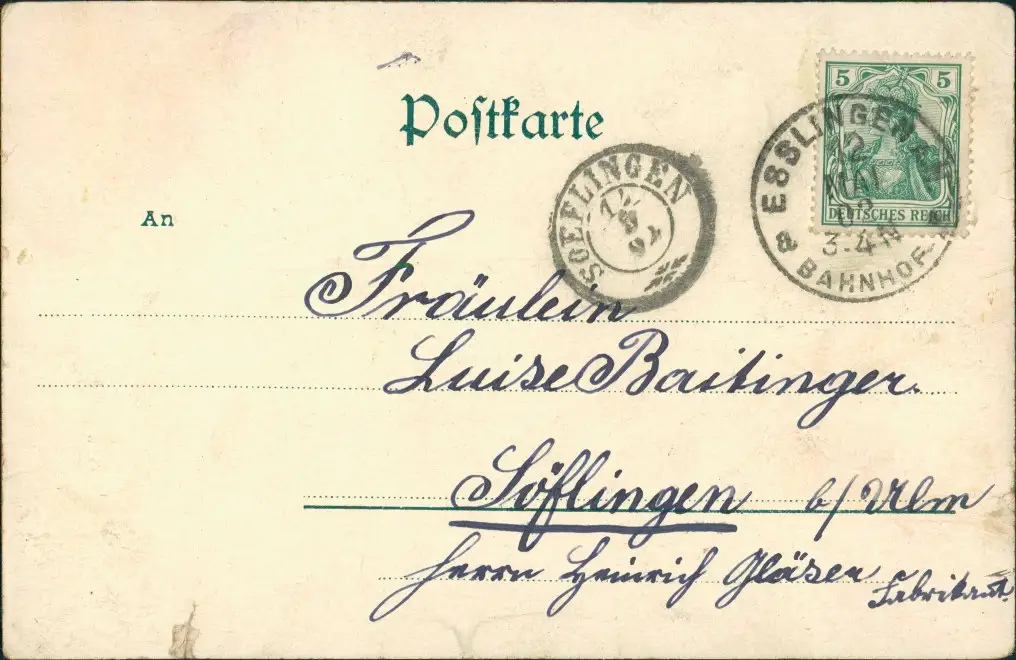 Postkarte
5 5
DEUTSCHES REICH
ESSLINGEN
MAI
3-4N
a BAHNHOF
SOEFLINGEN
An
Fräulein
Luise Baitinger.
Söflingen b/Ulm
Herrn Heinrich Gläser
Fabrikant.